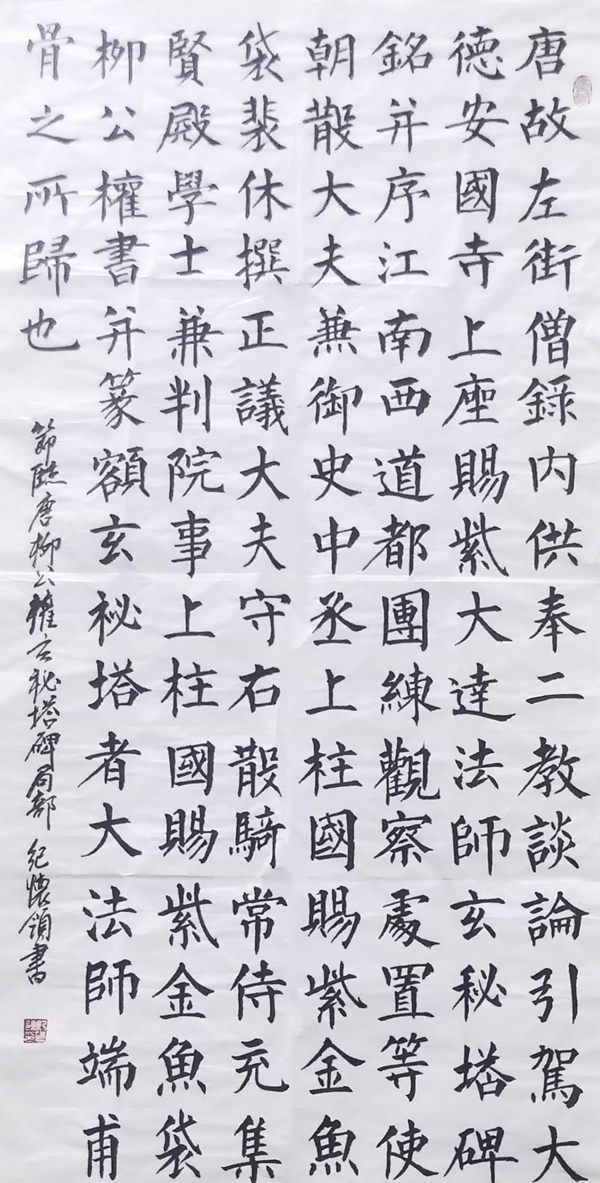 唐故左街僧錄内供奉二教談論引駕大
德安國寺上座賜紫大達法師玄秘塔碑
銘并序江南西道都團練觀察處置等使
朝散大夫兼御史中丞上柱國賜紫金魚
袋裴休撰正議大夫守右散騎常侍充集
賢殿學士兼判院事上柱國賜紫金魚袋
柳公權書并篆額玄祕塔者大法師端甫
骨之所歸也
節臨唐柳公權玄秘塔碑局部 紀懷領書